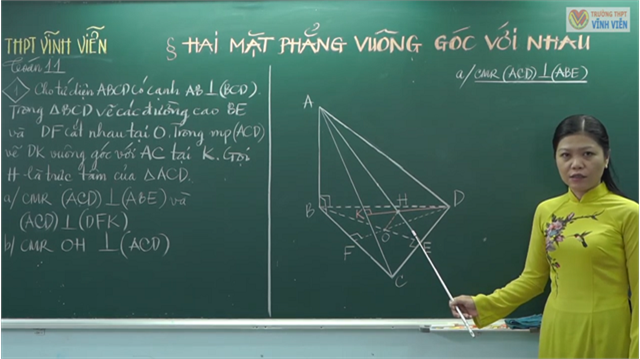 TRƯỜNG THPT
VĨNH VIỄN
THPT VĨNH VIỄN
§ HAI MẶT PHẲNG VUÔNG GÓC VỚI NHAU
Toán 11
1 Cho tứ diện ABCD có cạnh AB ⊥ (BCD).
Trong ΔBCD vẽ các đường cao BE
và DF cắt nhau tại O. Trong mp(ACD)
vẽ DK vuông góc với AC tại K. Gọi
H là trực tâm của ΔACD.
a/ CMR (ACD) ⊥ (ABE) và
(ACD) ⊥ (DFK)
b/ CMR OH ⊥ (ACD)
a/ CMR (ACD) ⊥ (ABE)
A
B
K
H
D
F
O
E
C